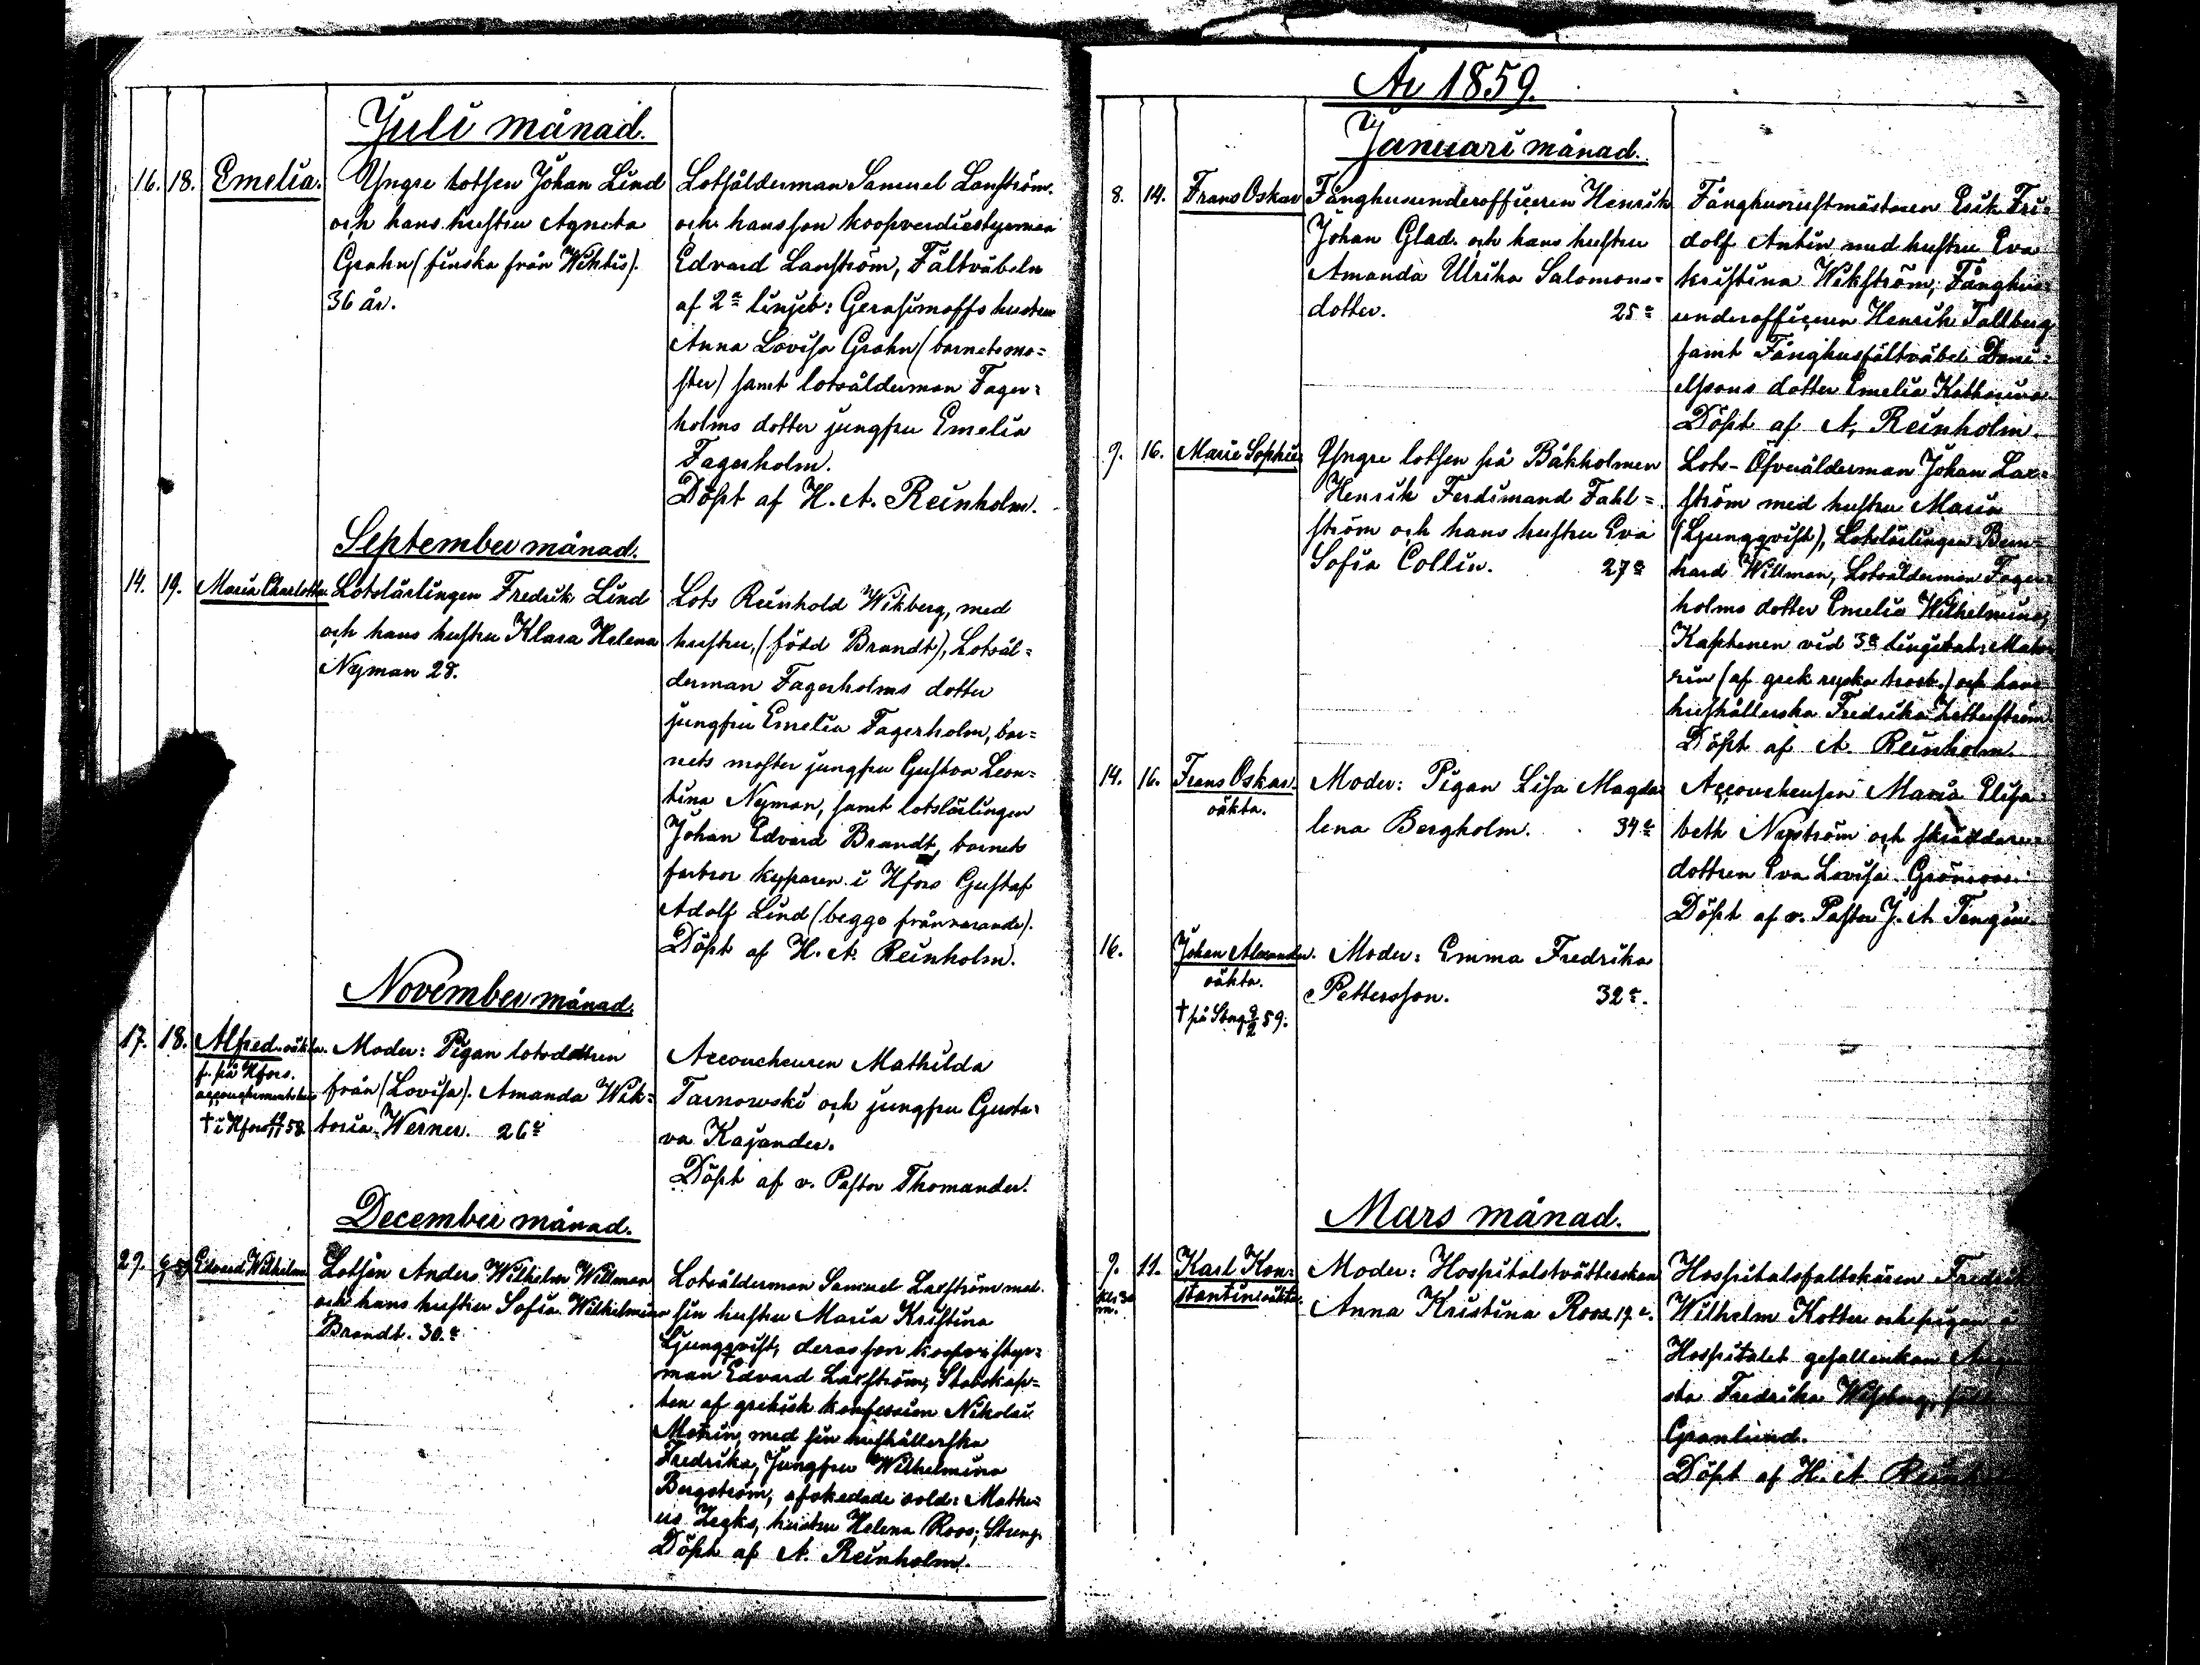 Juli månad.
16. 18. Emelia. Yngre lotsen Johan Lind
och hans hustru Agneta
Grahn (finska från Wiktis).
36 år.
Lotsålderman Samuel Laxström.
och hans son koopverdiestyrman
Edvard Laxström, Fältväbeln
af 2a linjeb: Gerasimoffs hustru
Anna Lovisa Grahn (barnets mo=
ster) samt lotsålderman Fager=
holms dotter jungfru Emelia
Fagerholm.
Döpt af H. A. Reinholm.
September månad.
14. 19. Maria Charlotta Lotslärlingen Fredrik Lind
och hans hustru Klara Helena
Nyman 28.
Lots Reinhold Wikberg, med
hustru, (född Brandt), Lotsål=
derman Fagerholms dotter
jungfru Emelia Fagerholm, bar=
nets moster jungfru Gustva Leon=
tina Nyman, samt lotslärlingen
Johan Edvard Brandt, barnets
farbror kyparen i Hfors Gustaf
Adolf Lind (begge frånvarande).
Döpt af H. A. Reinholm.
November månad.
17. 18. Alfred oäkta. Moder: Pigan lotsdottren
f. på Hfors.
från (Lovisa). Amanda Wik=
† i Hfors 58 toria Werner. 26
Accoucheuren Mathilda
Tarnowski och jungfru Gusta=
va Kajander.
Döpt af v. Pastor Thomander.
December månad.
29. Edvard Wilhelm Lotsen Anders Wilhelm Willman
och hans hustru Sofia Wilhelmina
Brandt. 30.
Lotsålderman Samuel Laxström med
sin hustru Maria Kristina
Ljungqvist, deras son koopv: styr=
man Edvard Laxström, Stabskap=
ten af grekisk konfession Nikolai
med sin hushållerska
Fredrika, Jungfru Wilhelmina
Bergström, afskedade sold: Mathe=
us hustru Helena Roos;
Döpt af A. Reinholm.
År 1859.
Januari månad.
8. 14. Frans Oskar Fånghusunderofficeren Henrik
Johan Glad. och hans hustru
Amanda Ulrika Salomons=
dotter. 25
Fånghusrustmästaren Erik Fri=
dolf Antin med hustru Eva
Kristina Wikström, Fånghus=
underofficeren Henrik Tallberg
samt Fånghusfältväbel Dani=
elssons dotter Emelia Katharina
Döpt af A. Reinholm.
9. 16. Maria Sophia Yngre lotsen på Båkholmen
Henrik Ferdinand Fahl=
ström och hans hustru Eva
Sofia Collin. 27
Lots-Öfverålderman Johan Lax=
ström med hustru Maria
(Ljungqvist), Lotslärlingen Bern=
hard Willman, Lotsålderman Fager=
holms dotter Emelia Wilhelmina,
Kaptenen vid 3e
(af grek ryska trosb.) och hans
hushållerska Fredrika Zetterström
Döpt af A. Reinholm.
14. 16. Frans Oskar. Moder: Pigan Lisa Magda=
oäkta. lena Bergholm. 34
Accoucheusen Maria Elisa=
beth Nyström och skräddare=
dottren Eva Lovisa
Döpt af v. Pastor J. A.
16. Johan Alexander. Moder: Emma Fredrika
oäkta. Pettersson. 32.
† på 59.
Mars månad.
9. 11. Karl Kon= Moder: Hospitalstvätterskan
stantin oäkta. Anna Kristina Roos 19
Hospitalsfältskären Fredrik
Wilhelm Kotter och pigan i
Hospitalet
Fredrika
Granlund.
Döpt af H. A.